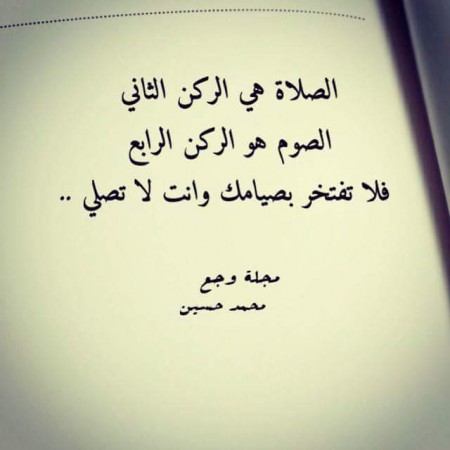 الصلاة هي الركن الثاني
الصوم هو الركن الرابع
فلا تفتخر بصيامك وانت لا تصلي ..
مجلة وجع
محمد حسين